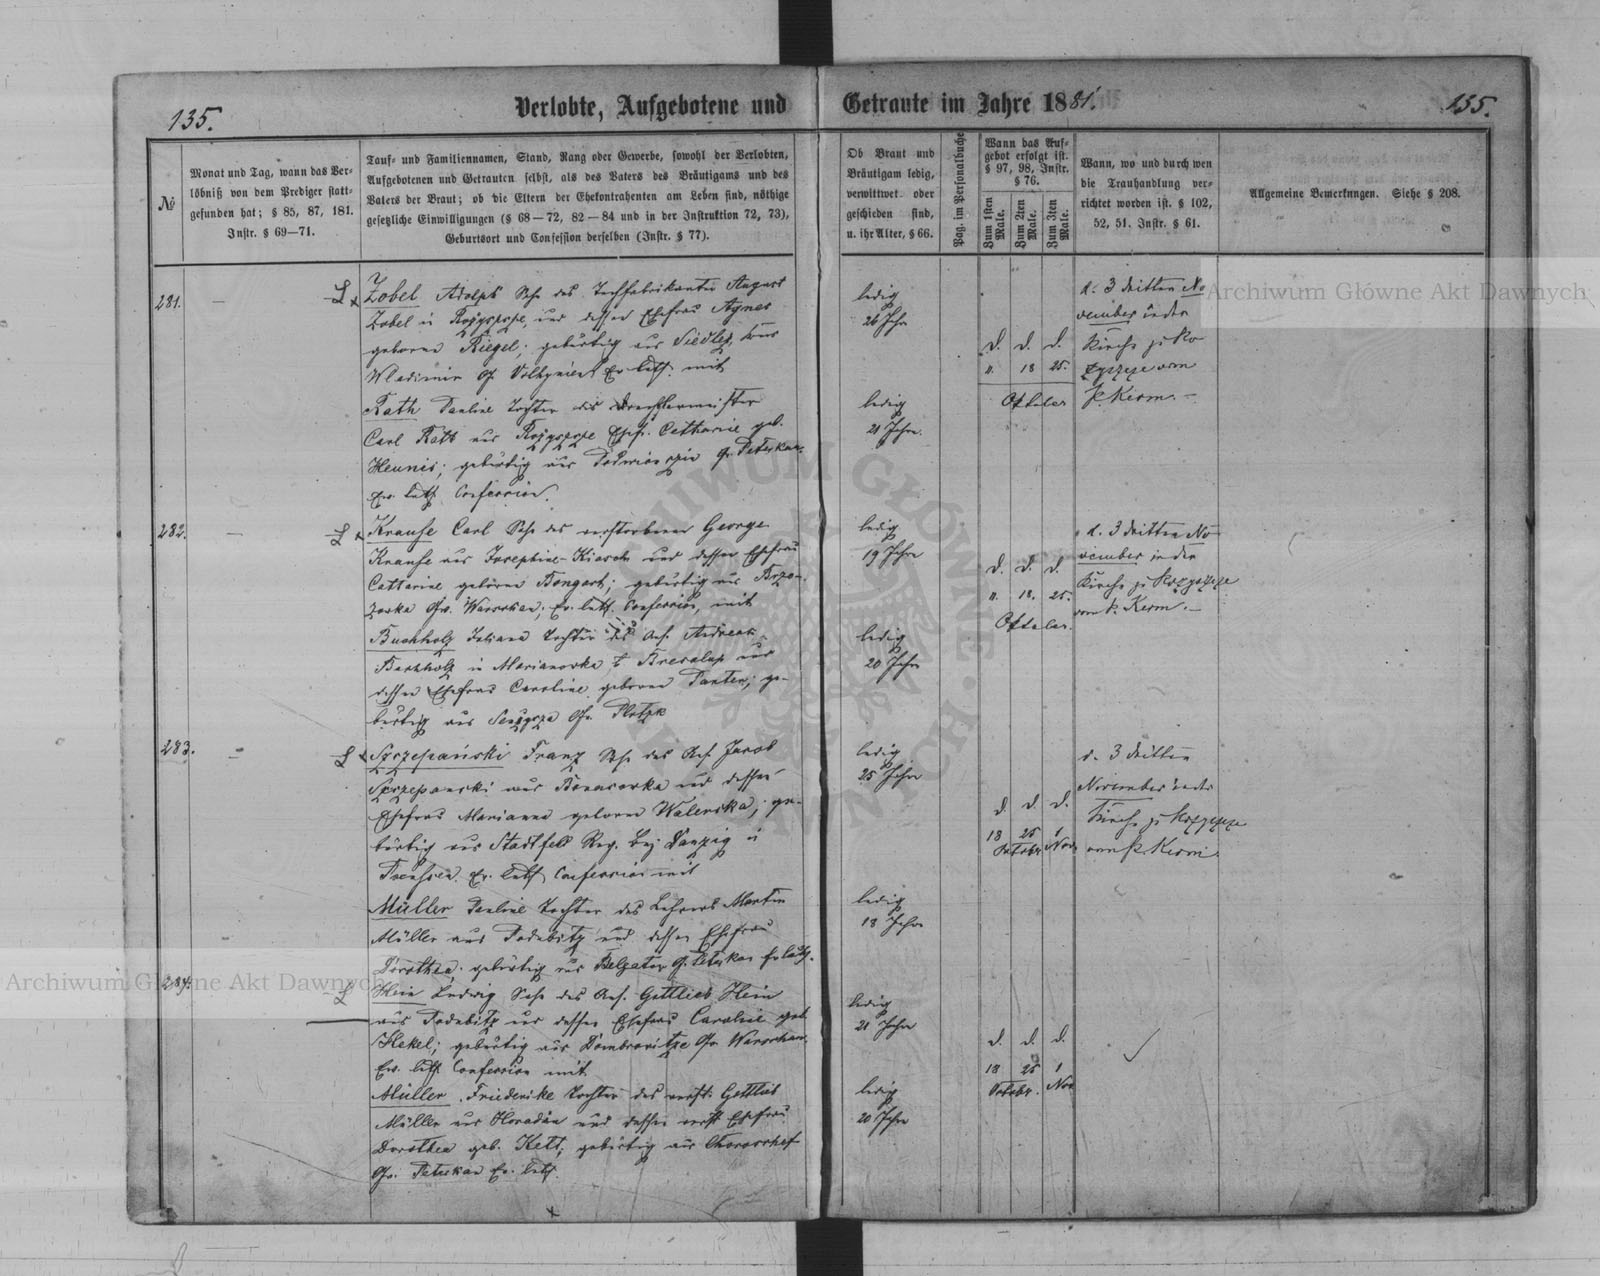 135.
Verlobte, Aufgebotene und Getraute im Jahre 1881.
135.
№
Monat und Tag, wann das Ver-
löbniß von dem Prediger statt-
gefunden hat; § 85, 87, 181.
Instr. § 69—71.
Tauf- und Familiennamen, Stand, Rang oder Gewerbe, sowohl der Verlobten,
Aufgebotenen und Getrauten selbst, als des Vaters des Bräutigams und des
Vaters der Braut; ob die Eltern der Ehekontrahenten am Leben sind, nöthige
gesetzliche Einwilligungen (§ 68—72, 82—84 und in der Instruktion 72, 73),
Geburtsort und Confession derselben (Instr. § 77).
Ob Braut und
Bräutigam ledig,
verwittwet oder
geschieden sind,
u. ihr Alter, § 66.
Pag. im Personalbuche
Wann das Auf-
gebot erfolgt ist.
§ 97, 98, Instr.
§ 76.
Zum 1sten Male.
Zum 2ten Male.
Zum 3ten Male.
Wann, wo und durch wen
die Trauhandlung ver-
richtet worden ist. § 102,
52, 51. Instr. § 61.
Allgemeine Bemerkungen. Siehe § 208.
281.
Zobel Adolph Sohn des Tuchfabrikanten August
Zobel in Rożyszcze und dessen Ehefrau Agnes
geborne Riegel; gebürtig aus
Wladimir G. Volhynien Ev. luth. mit
Rath Pauline Tochter des Drechslermeister
Carl Rath aus Rożyszcze Ehfr. Catharine geb.
Hennis; gebürtig aus G. Petrikau
Ev. luth. Confession.
ledig
26 Jahr
ledig
21 Jahr.
d. d. d.
11. 18 25.
October
d. 3 dritten No
vember in der
Kirche zu Ro
zyszcze vom
P. Kerm.
282.
Krause Carl Sohn des verstorbenen George
Krause aus Josephine- und dessen Ehefrau
Catharine geborne Bongart; gebürtig aus
Gv. Warschau; Ev. luth. Confession, mit
Buchholz Juliana Tochter des Anf. Andreas
Buchholz in Marianowka und
dessen Ehefrau Caroline geborne Panten; ge-
bürtig aus Gv. Plotzk
ledig
19 Jahre
ledig
20 Jahr
d. d. d.
11. 18. 25.
October.
d. 3 dritten No
vember in der
Kirche zu Rozyszcze
vom P. Kerm.
283.
Szczepański Franz Sohn des Anf. Jacob
Szczepanski aus und dessen
Ehefrau Marianna geborne Walerska; ge-
bürtig aus Stadtfeld Reg. Bez. Danzig in
Preußen. Ev. luth. Confession mit
Müller Pauline Tochter des Lehrers Martin
Müller aus und dessen Ehefrau
Dorothea; gebürtig aus Belgatow G. Petrikau Ev luth.
ledig
25 Jahre
ledig
18 Jahr
d. d. d.
18 25 1
October Nov.
d. 3 dritten
November in der
Kirche zu Rozyszcze
vom P. Kerm.
284.
Hein Ludwig Sohn des Anf. Gottlieb Hein
aus und dessen Ehefrau Caroline geb.
Hekel; gebürtig aus Gv Warschau.
Ev. luth. Confession mit
Müller Friederike Tochter des verst. Gottlieb
Müller aus und dessen verst. Ehefrau
Dorothea geb. Kelt; gebürtig aus
Gv. Petrikau Ev. luth.
ledig
21 Jahr
ledig
20 Jahr
d. d. d.
18 25 1
October. Nov
Archiwum Główne Akt Dawnych
Archiwum Główne Akt Dawnych